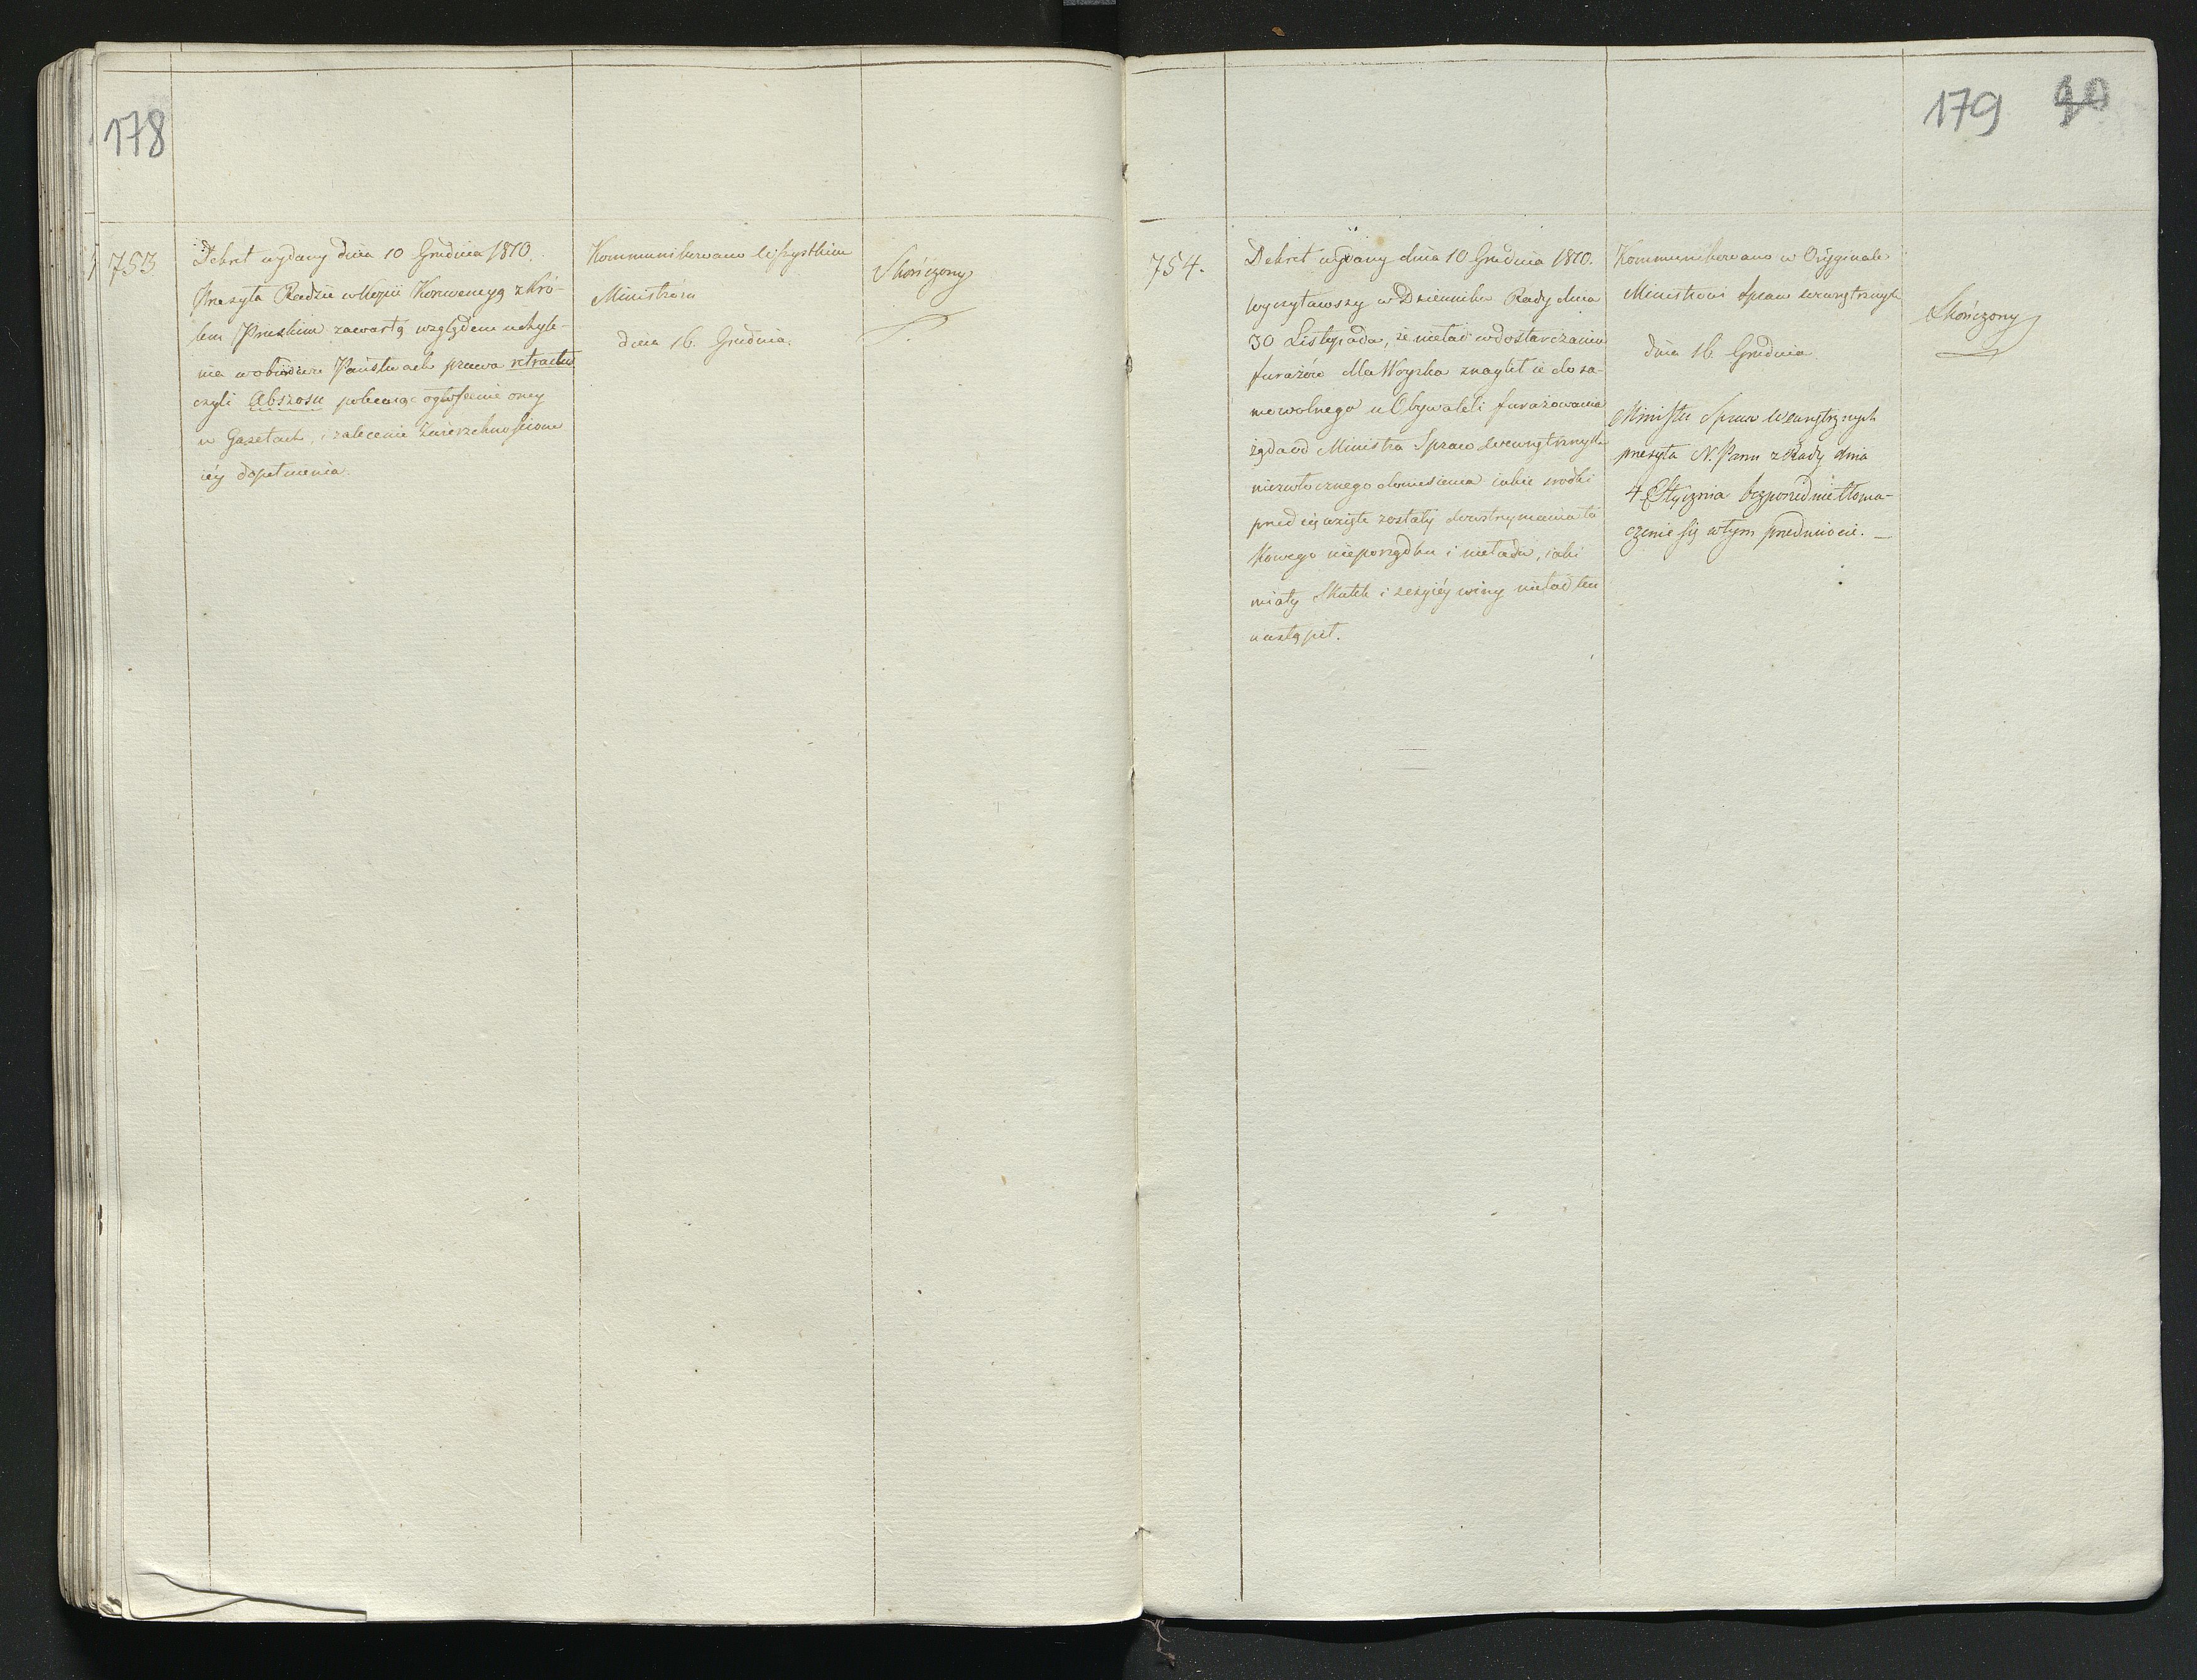 178
753
Dekret wydany dnia 10 Grudnia 1810.
Przesyła Radzie w Kopii Konwencyą z Kró-
lem Pruskim zawartą względem uchyle-
nia w obudwu Państwach prawa retractus
czyli Abszosu polecaiąc ogłoszenie oney
w Gazetach, i zalecenie Zwierzchnościom
iéy dopełnienia.
Kommunikowano Wszystkim
Ministróm
dnia 16. Grudnia.
Skończony
179 90
754.
Dekret wydany dnia 10 Grudnia 1810.
wyczytawszy w Dzienniku Rady dnia
30 Listopada, że nieład w dostarczaniu
furażów dla Woyska znaglił ie do sa-
mowolnego u Obywateli furażowania
żąda od Ministra Spraw Wewnętrznych
niezwłocznego doniesienia iakie srodki
przedsięwzięte zostały do wstrzymania ta
kowego nieporządku i nieładu, iaki
miały Skutek i z czyiéy winy nieład ten
nastąpił.
Kommunikowano w Oryginale
Ministrowi Spraw Wewnętrznych
dnia 16. Grudnia
Minister Spraw Wewnętrznych
przesyła N. Panu z Rady dnia
4 Stycznia bezpośrednie tłoma-
czenie się w tym przedmiocie. _
Skończony